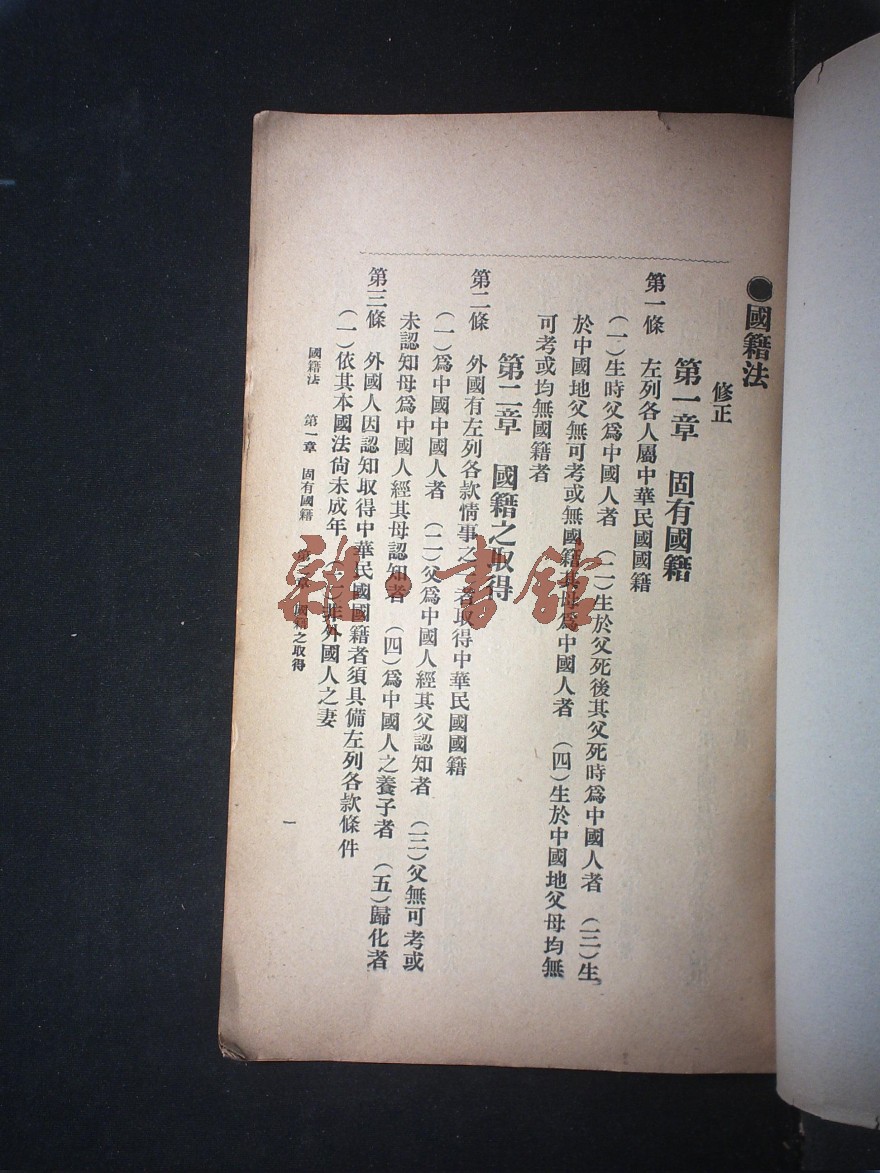 ●國籍法
修正
第一章　固有國籍
第一條　左列各人屬中華民國國籍
（一）生時父爲中國人者　（二）生於父死後其父死時爲中國人者　（三）生
於中國地父無可考或無國籍其母爲中國人者　（四）生於中國地父母均無
可考或均無國籍者
第二章　國籍之取得
第二條　外國有左列各款情事之一者取得中華民國國籍
（一）爲中國中國人者　（二）父爲中國人經其父認知者　（三）父無可考或
未認知母爲中國人經其母認知者　（四）爲中國人之養子者　（五）歸化者
第三條　外國人因認知取得中華民國國籍者須具備左列各款條件
（一）依其本國法尙未成年　（二）非外國人之妻
國籍法　第一章　固有國籍　第二章　國籍之取得
一
雜·書館